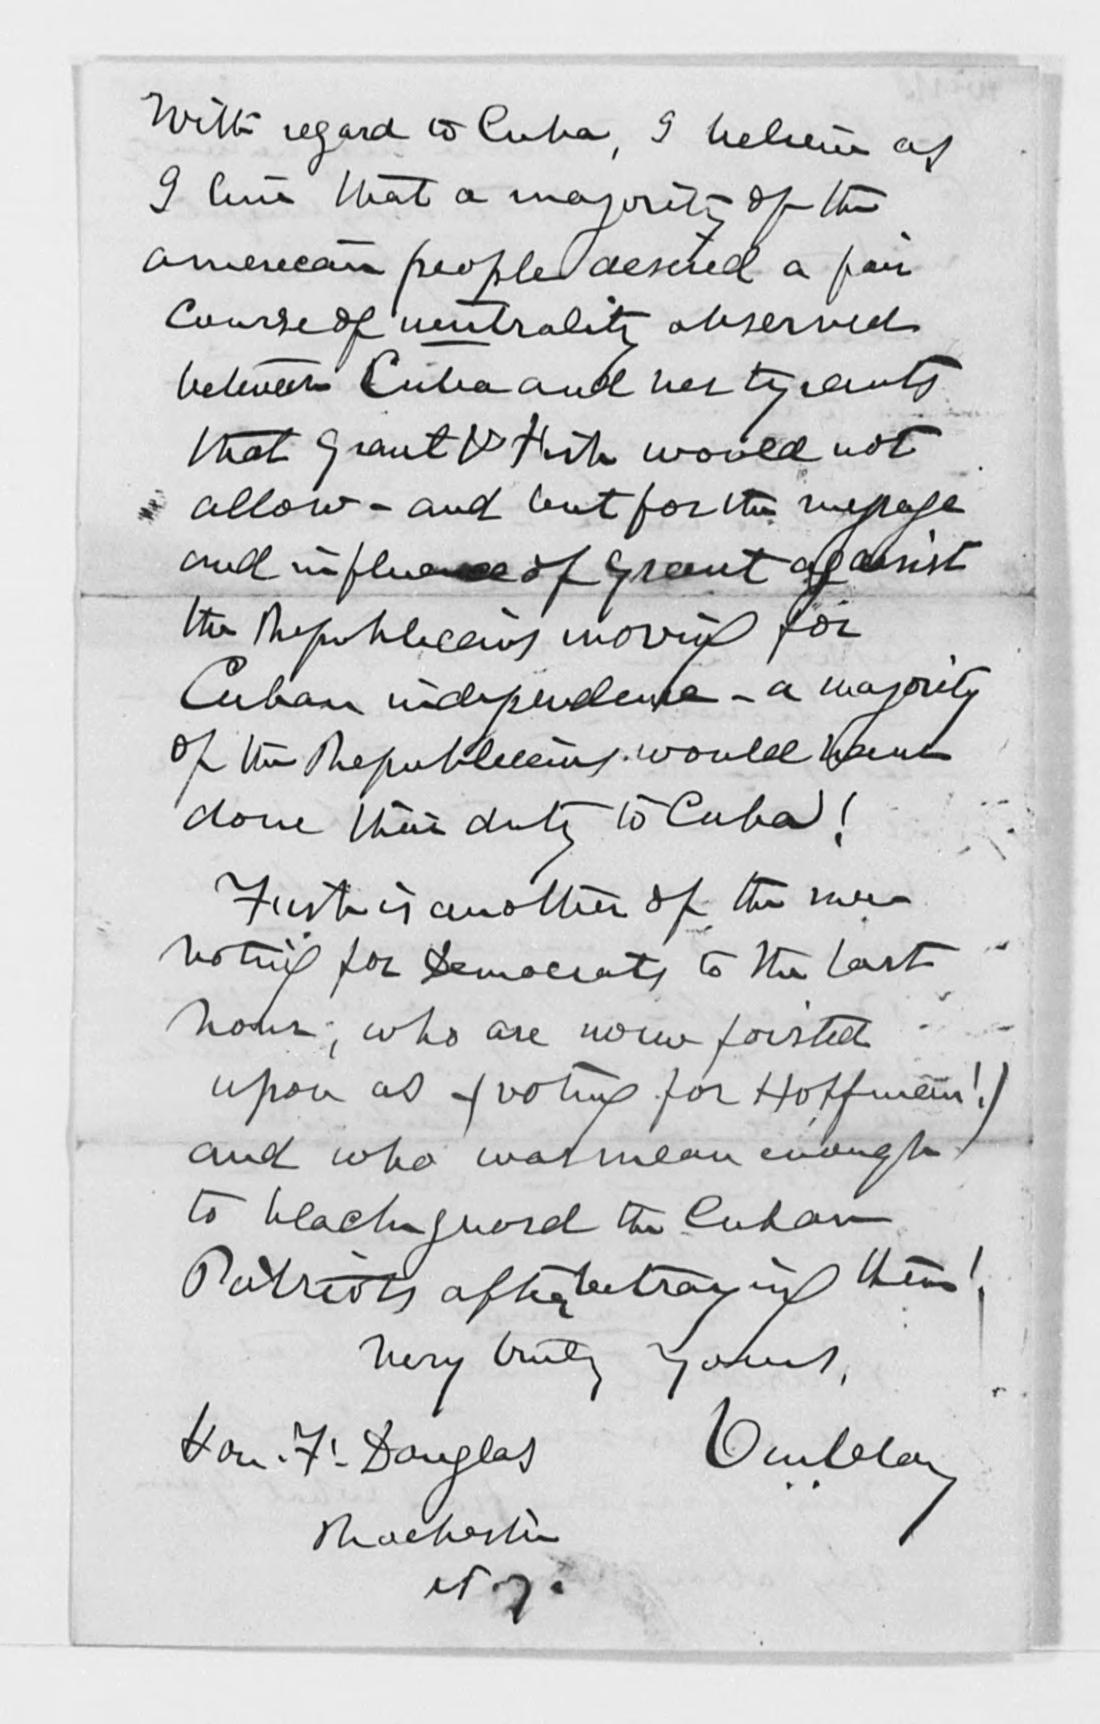 With regard to Cuba, I believe as
I live that a majority of the
American people desired a fair
course of neutrality observed
between Cuba and her tyrants
that Grant & Fish would not
allow - and but for the message
and influence of Grant against
the Republicans moving for
Cuban independence - a majority
of the Republicans would have
done their duty to Cuba!
Fish is another of the men
voting for Democrats to the last
hour; who are now foisted
upon us (voting for Hoffman!)
and who was mean enough
to blackguard the Cuban
Patriots after betraying them!
Very truly yours,
Hon. F. Douglas
Rochester
N.Y.